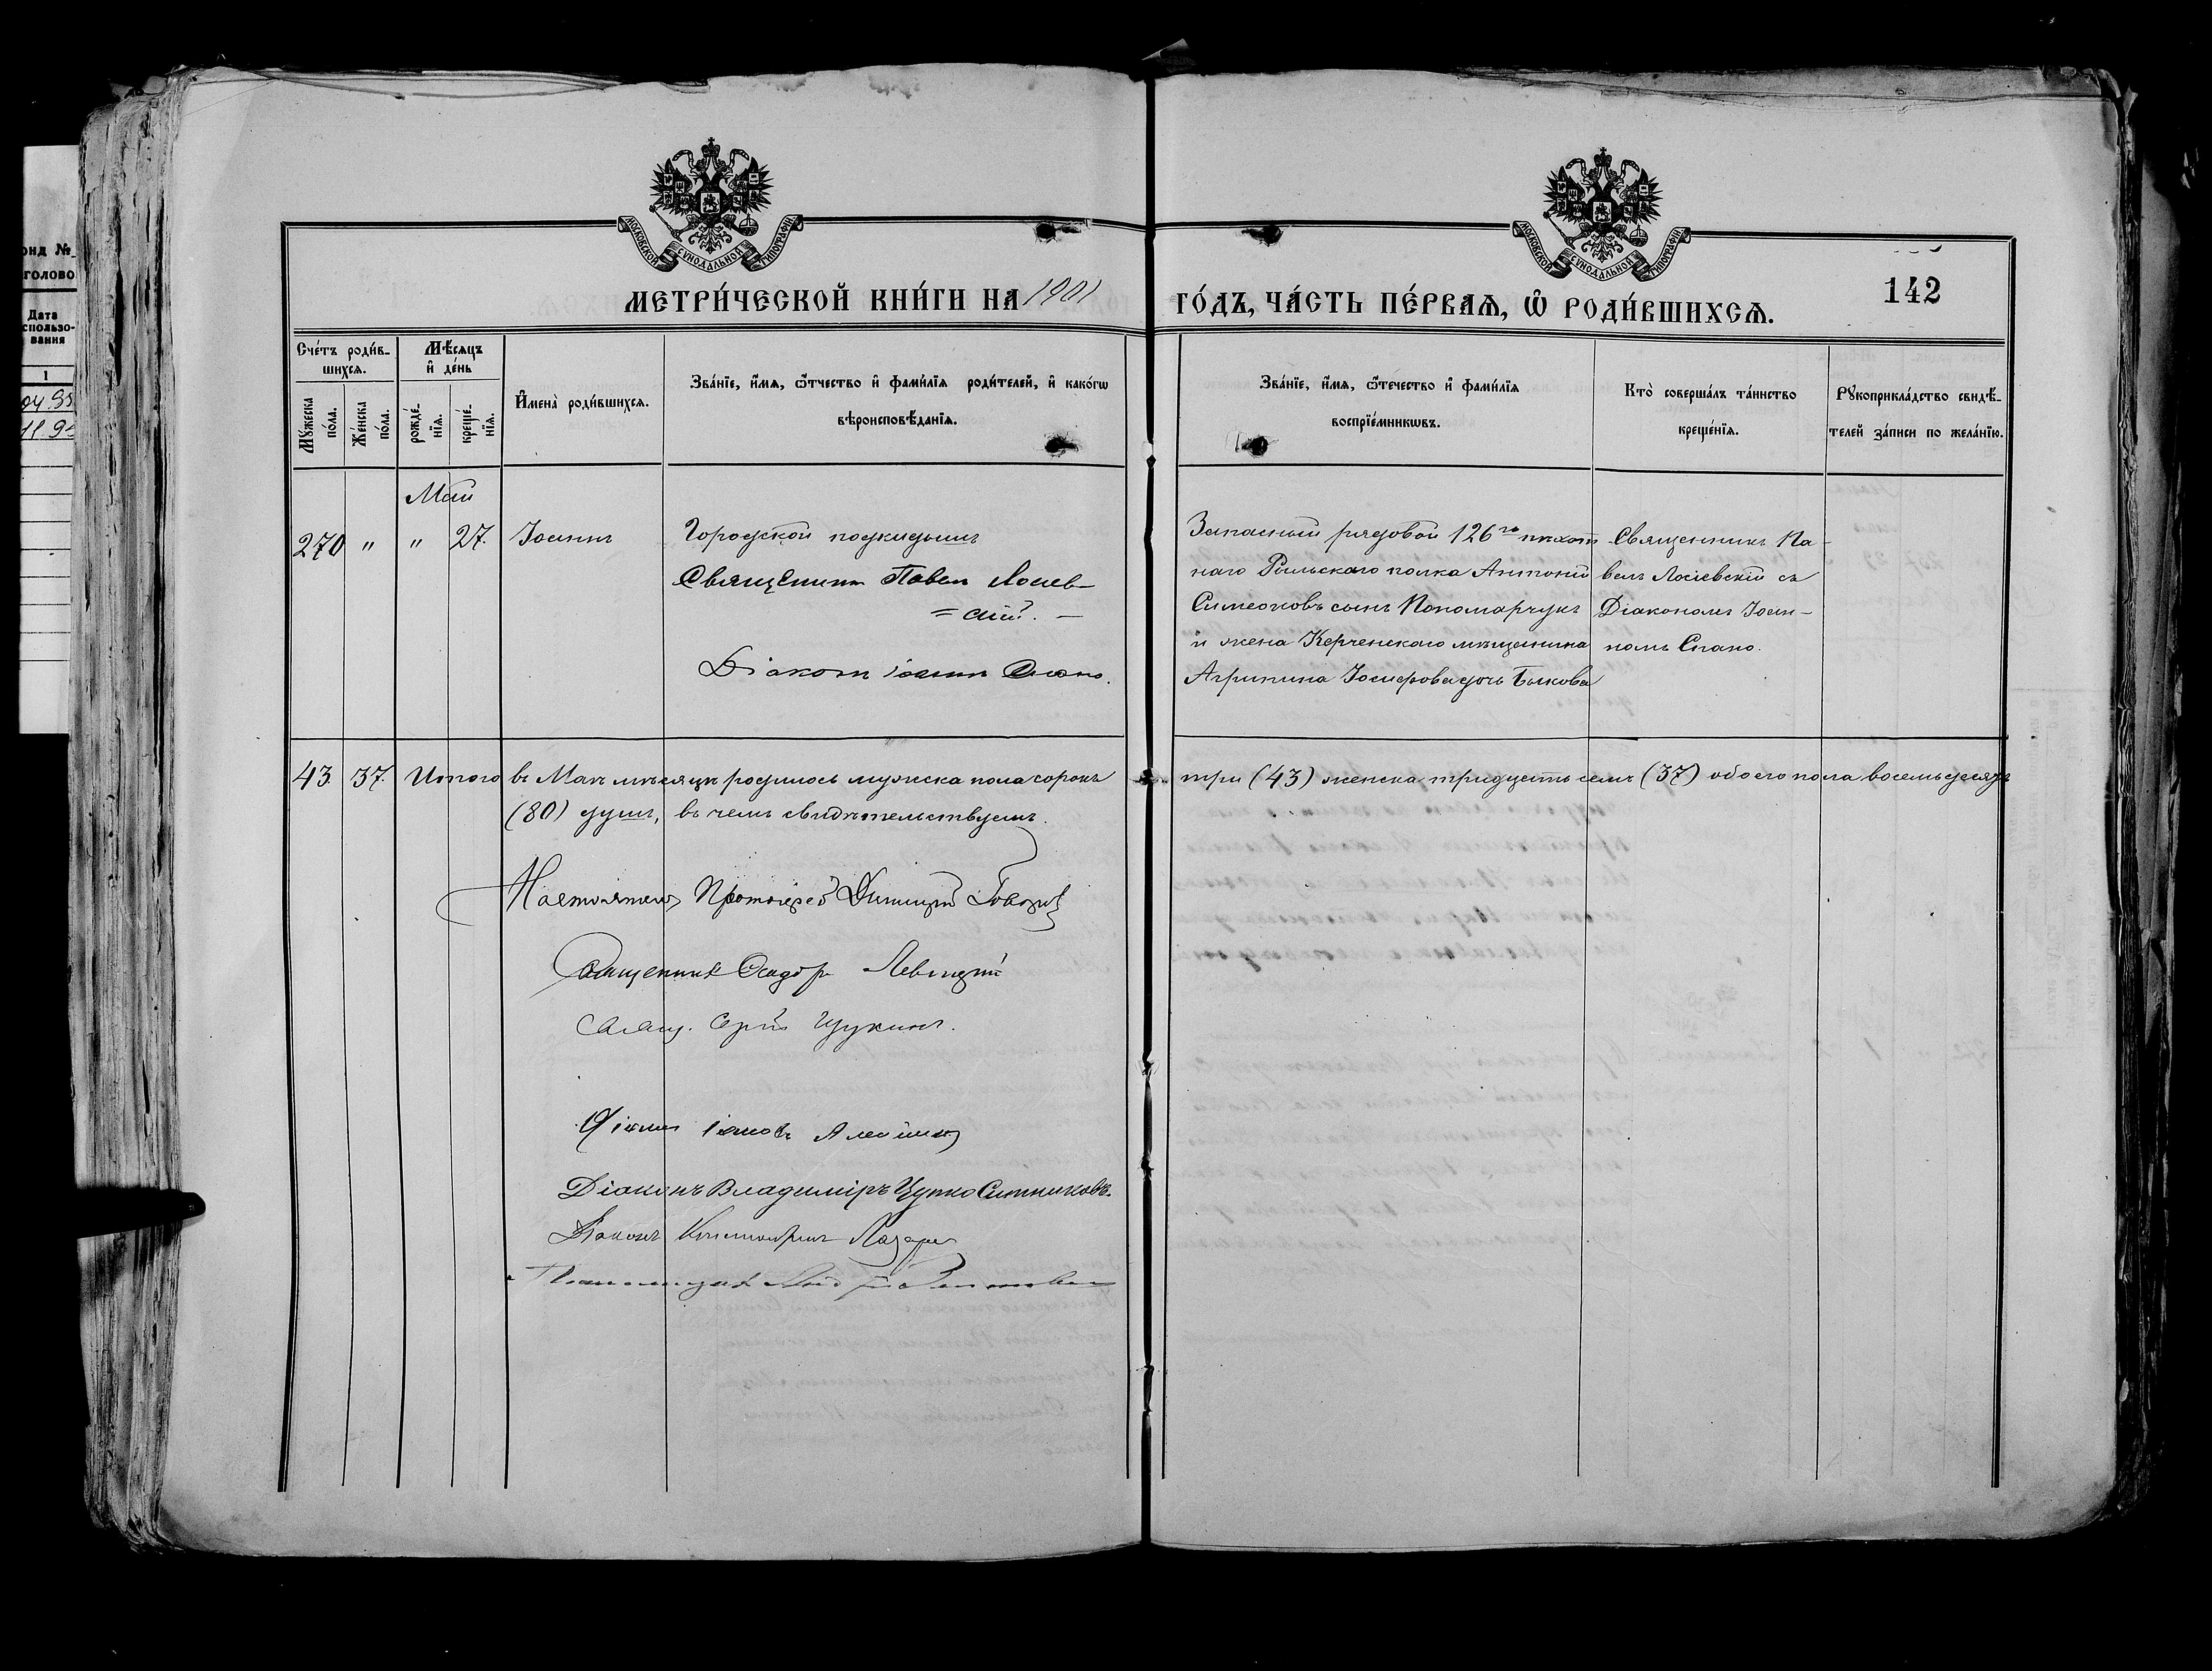 МОСКОВСКОЙ СѴНОДАЛЬНОЙ ТИПОГРАФІИ
МОСКОВСКОЙ СѴНОДАЛЬНОЙ ТИПОГРАФІИ
МЕТРИ́ЧЕСКОЙ КНИ́ГИ НА 1901
ГО́ДЪ, ЧА́СТЬ ПЕ́РВАѦ, Ѡ РОДИ́ВШИХСѦ.
142
Сче́тъ роди́в-
шихсѧ.
Мꙋжеска по́ла.
Же́нска по́ла.
Мѣ́сяцъ и де́нь
рожде́-нїѧ.
креще́-нїѧ.
Имена̀ роди́вшихсѧ.
Зва́нїе, и́мѧ, ѻ́тчество и фами́лїѧ роди́телей, и како́гѡ
вѣроисповѣ́данїѧ.
Зва́нїе, и́мѧ, ѻ́течество и фами́лїѧ
воспрїе́мникѡвъ.
Кто̀ соверша́лъ та́инство
креще́нїѧ.
Рꙋкоприкла́дство свидѣ́-
телей за́писи по жела́нїю.
Май
270 " " 27. Іоаннъ
Городской подкидышъ
Священникъ Павелъ Лосіев-
=скій. —
Діаконъ Іоаннъ Спано.
Запасный рядовой 126го пѣхот-
наго Рыльскаго полка Антоній
Симеоновъ сынъ Пономарчукъ
и жена Керченскаго мѣщанина
Агрипина Іосифова дочь Быкова
Священникъ Па-
велъ Лосіевскій съ
Діакономъ Іоан-
номъ Спано.
43. 37. Итого въ Маѣ мѣсяцѣ родилось мужеска пола сорокъ
три (43) женска тридцать семь (37) обоего пола восемьдесятъ
(80) душъ, въ чемъ свидѣтельствуемъ.
Настоятель Протоіерей Димитрій
Священникъ Ѳеодоръ Левицкій
Свящ. Сергій Щукинъ.
Іаковъ
Діаконъ Владиміръ Цупко Ситниковъ.
Діаконъ Константинъ Лазарев
Псаломщикъ
онд №
голово
Дата
спользо-
вания
1